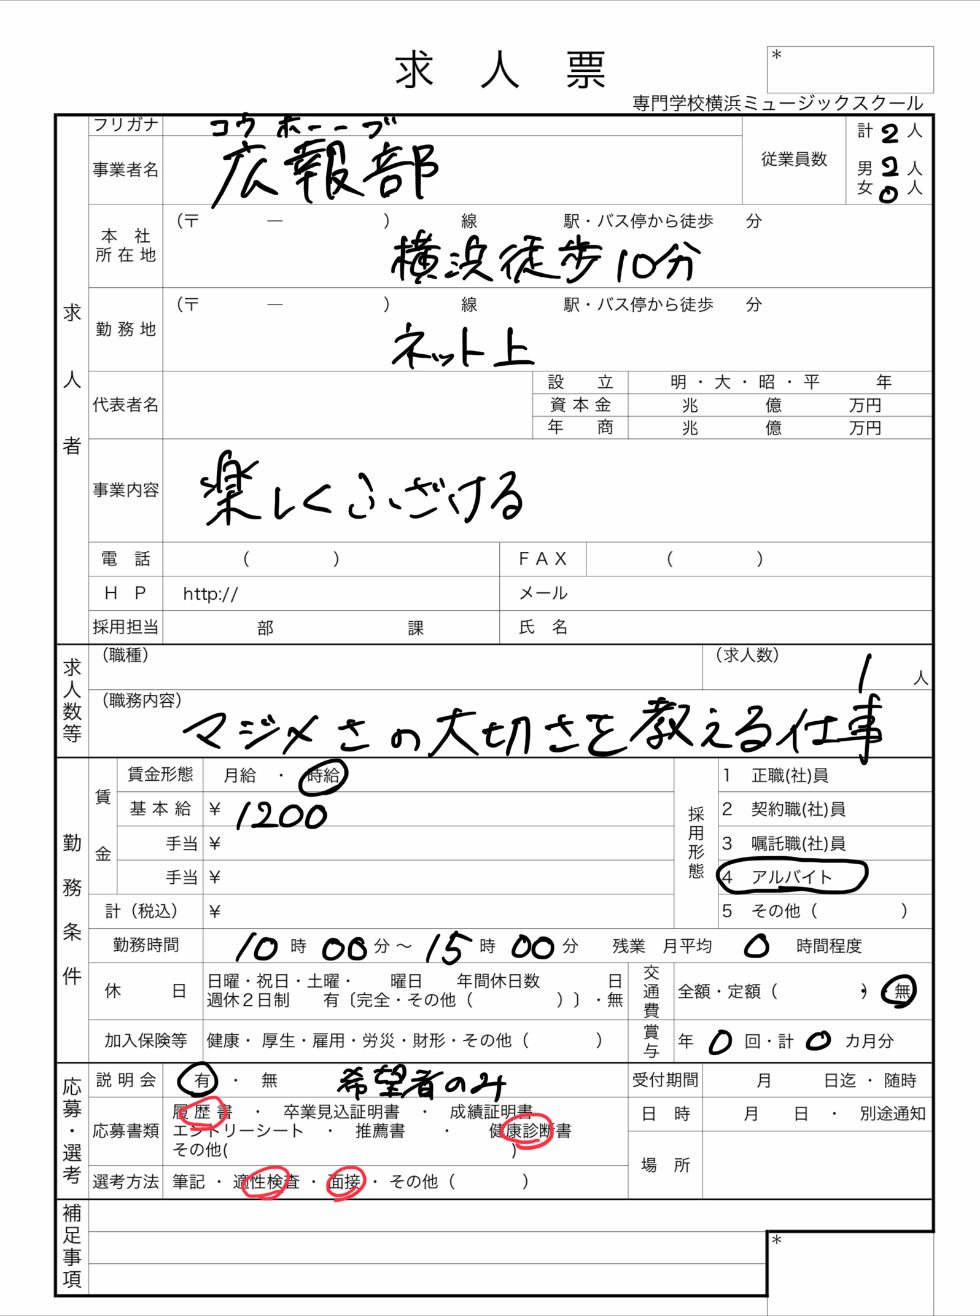 求人票
*
専門学校横浜ミュージックスクール
求人者
フリガナ コウホーーブ
事業者名 広報部
従業員数 計 2 人
男 2 人
女 0 人
本社所在地 (〒 ― ) 線 駅・バス停から徒歩 分
横浜徒歩10分
勤務地 (〒 ― ) 線 駅・バス停から徒歩 分
ネット上
代表者名
設立 明・大・昭・平 年
資本金 兆 億 万円
年商 兆 億 万円
事業内容 楽しくふざける
電話 ( ) FAX ( )
HP http:// メール
採用担当 部 課 氏名
求人数等
(職種) (求人数) 1 人
(職務内容)
マジメさの大切さを教える仕事
勤務条件
賃金
賃金形態 月給 ・ 時給
基本給 ¥ 1200
手当 ¥
手当 ¥
計(税込) ¥
採用形態
1 正職(社)員
2 契約職(社)員
3 嘱託職(社)員
4 アルバイト
5 その他( )
勤務時間 10 時 00 分 〜 15 時 00 分 残業 月平均 0 時間程度
休日 日曜・祝日・土曜・ 曜日 年間休日数 日
週休2日制 有〔完全・その他( )〕・無
交通費 全額・定額( )・無
加入保険等 健康・厚生・雇用・労災・財形・その他( )
賞与 年 0 回・計 0 カ月分
応募・選考
説明会 有 ・ 無 希望者のみ
受付期間 月 日迄・随時
応募書類 履歴書 ・ 卒業見込証明書 ・ 成績証明書
エントリーシート ・ 推薦書 ・ 健康診断書
その他( )
日時 月 日 ・ 別途通知
場所
選考方法 筆記・適性検査・面接・その他( )
補足事項
*